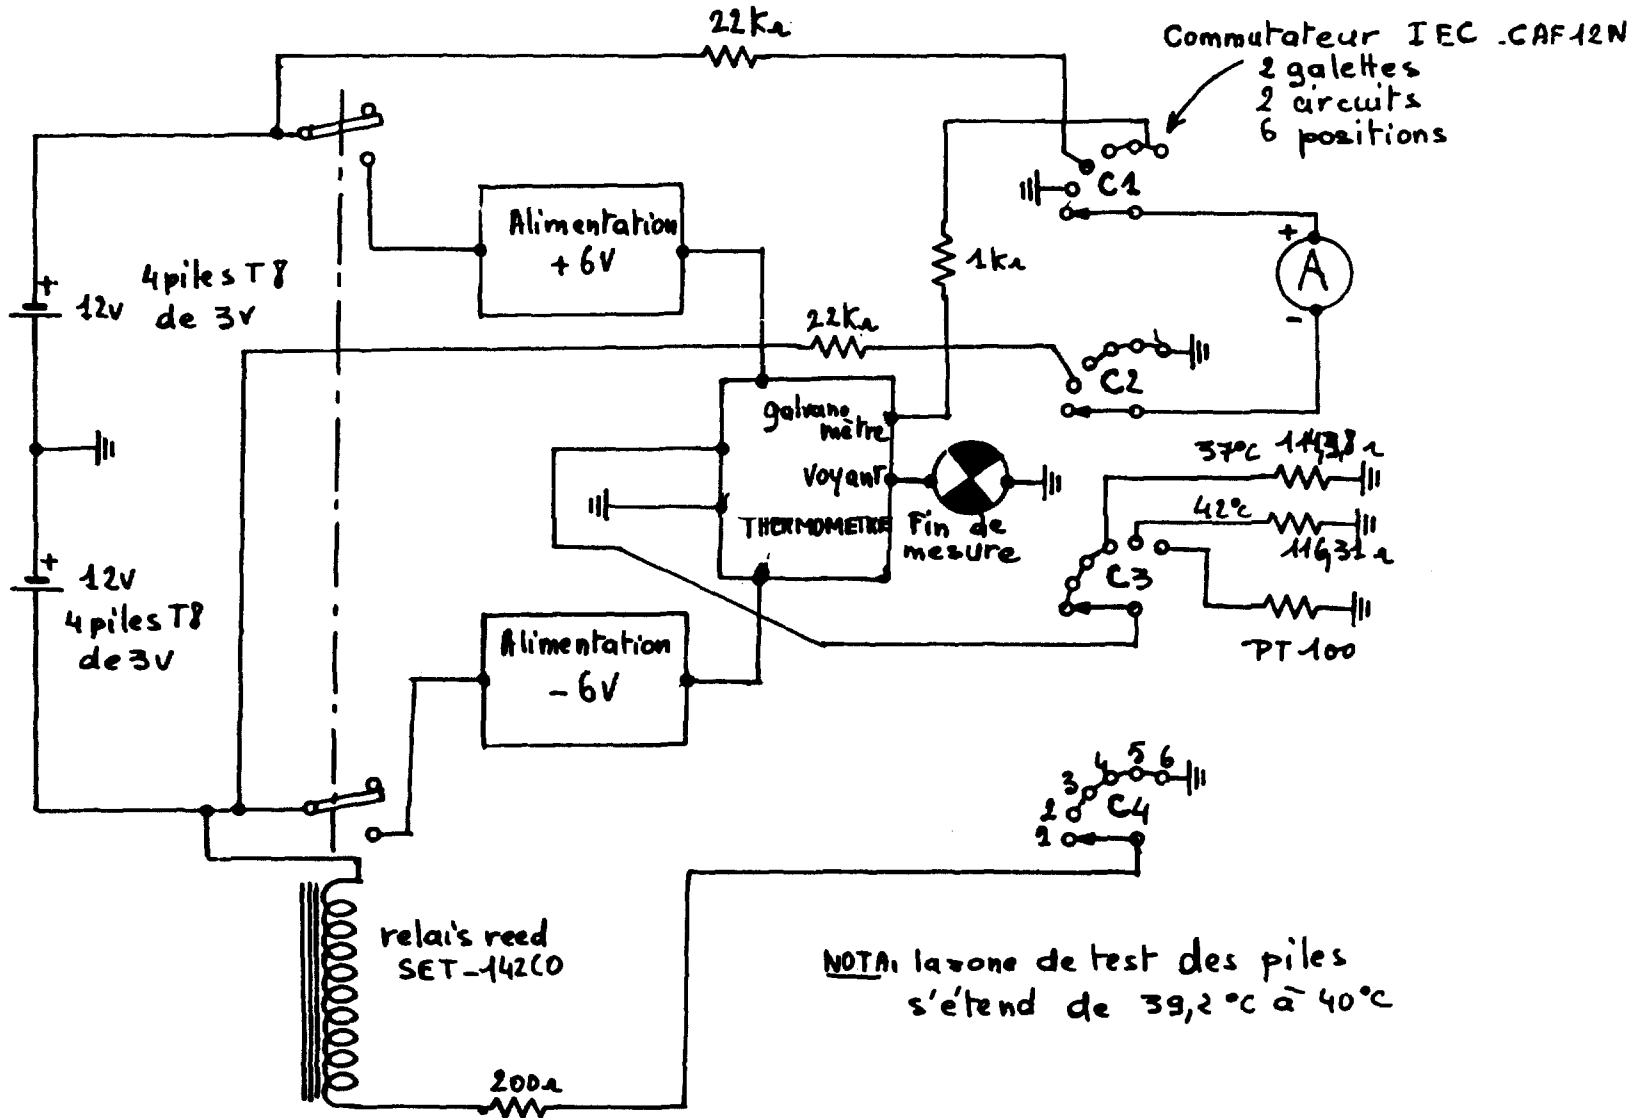 22KΩ
Commutateur IEC -CAF12N
2 galettes
2 circuits
6 positions
C1
Alimentation
+ 6V
+
A
-
1KΩ
4 piles T8
de 3V
+
12V
22KΩ
C2
galvano
mètre
Voyant
THERMOMETRE
Fin de
mesure
37°C 114,38Ω
42°C
116,31Ω
C3
PT 100
+
12V
4 piles T8
de 3V
Alimentation
- 6V
1 2 3 4 5 6
C4
relais reed
SET-142CO
200Ω
NOTA: la zone de test des piles
s'étend de 39,2°C à 40°C